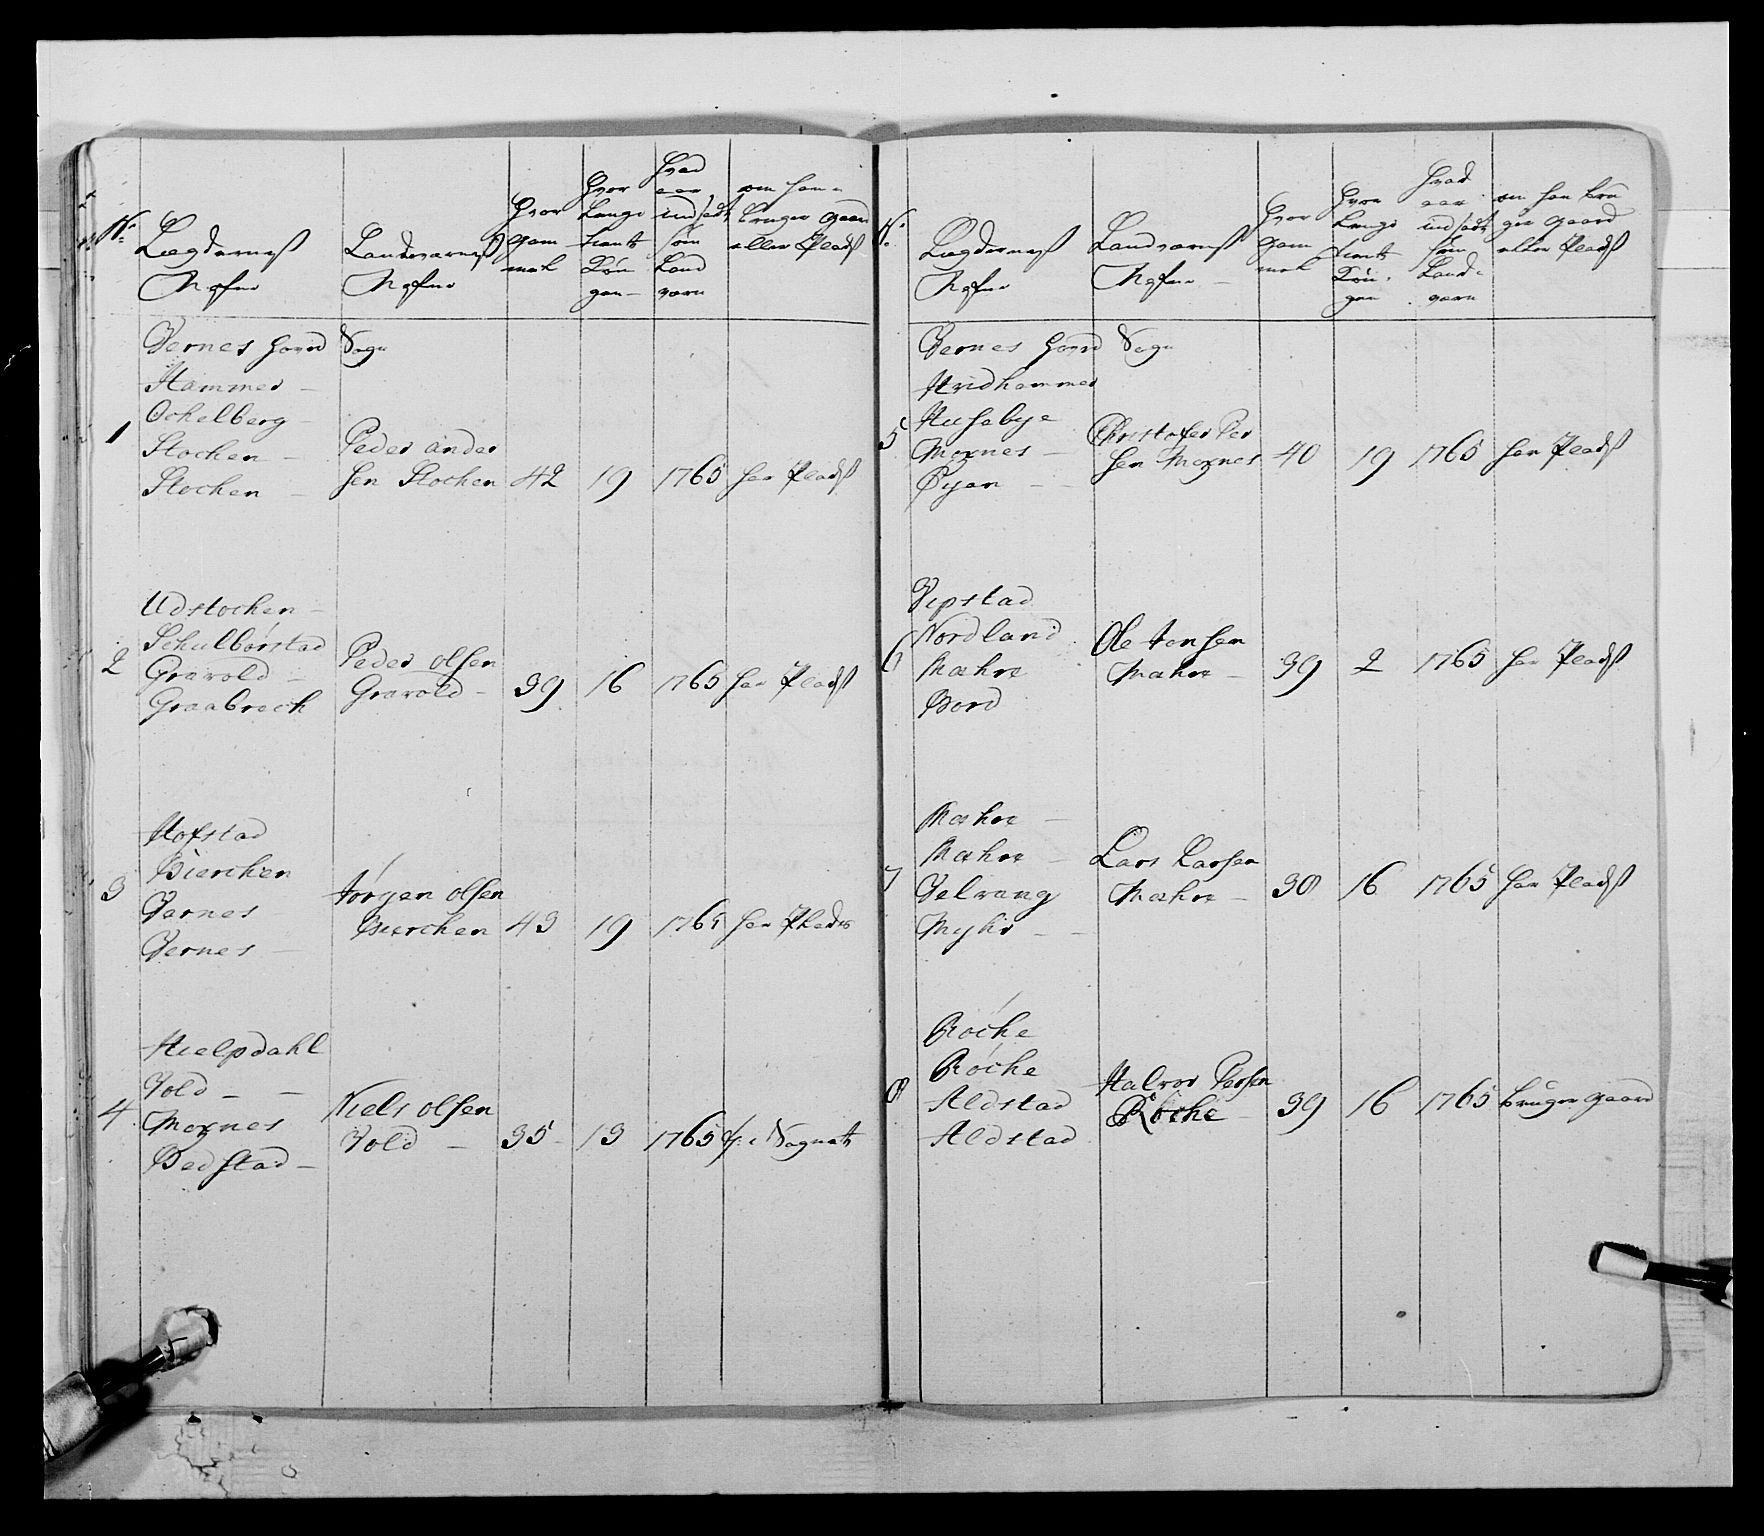 No
Lægdernes
Nafne
Landeværnes
Nafne
Hvor
gam
mel
Hvor
Lenge
tient
Kon
gen
Hvad
aar
indsadt
som
Land
værn
om han
bruger gaard
eller Pladß
Vernes Hoved Sogn
1
Hammer
Ochelberg
Stochen
Stochen
Peder ander
sen Stochen
42
19
1765
har Pladß
2
Udstochen
Schulbørstad
Gravold
Graabroch
Peder olsen
Gravold
39
16
1765
har Pladß
3
Hofstad
Bierchen
Varnes
Vernes
Jørgen olsen
Bierchen
43
19
1765
har Pladß
4
Hielpdahl
Vold
Moxnes
Bedstad
Niels olsen
Vold
35
13
1765
No
Lægdernes
Nafne
Landværnes
Nafne
Hvor
gam
mel
Hvor
Lenge
tient
Kon
gen
Hvad
aar
indsadt
som
Land
værn
om han bru
ger gaard
eller Pladß
Vernes Hoved Sogn
5
Hridhammer
Husebye
Moxnes
Øyan
Christofer Per
sen Moxnes
40
19
1765
har Pladß
6
Vipstad
Nordland
Mæhre
Bord
Ole Jonsen
Mæhre
39
2
1765
har Pladß
7
Mæhre
Mæhre
Velvang
Myhr
Lars Larsen
Mæhre
38
16
1765
har Pladß
8
Røche
Røche
Aldstad
Aldstad
Halvor Persen
Røche
39
16
1765
bruger gaard